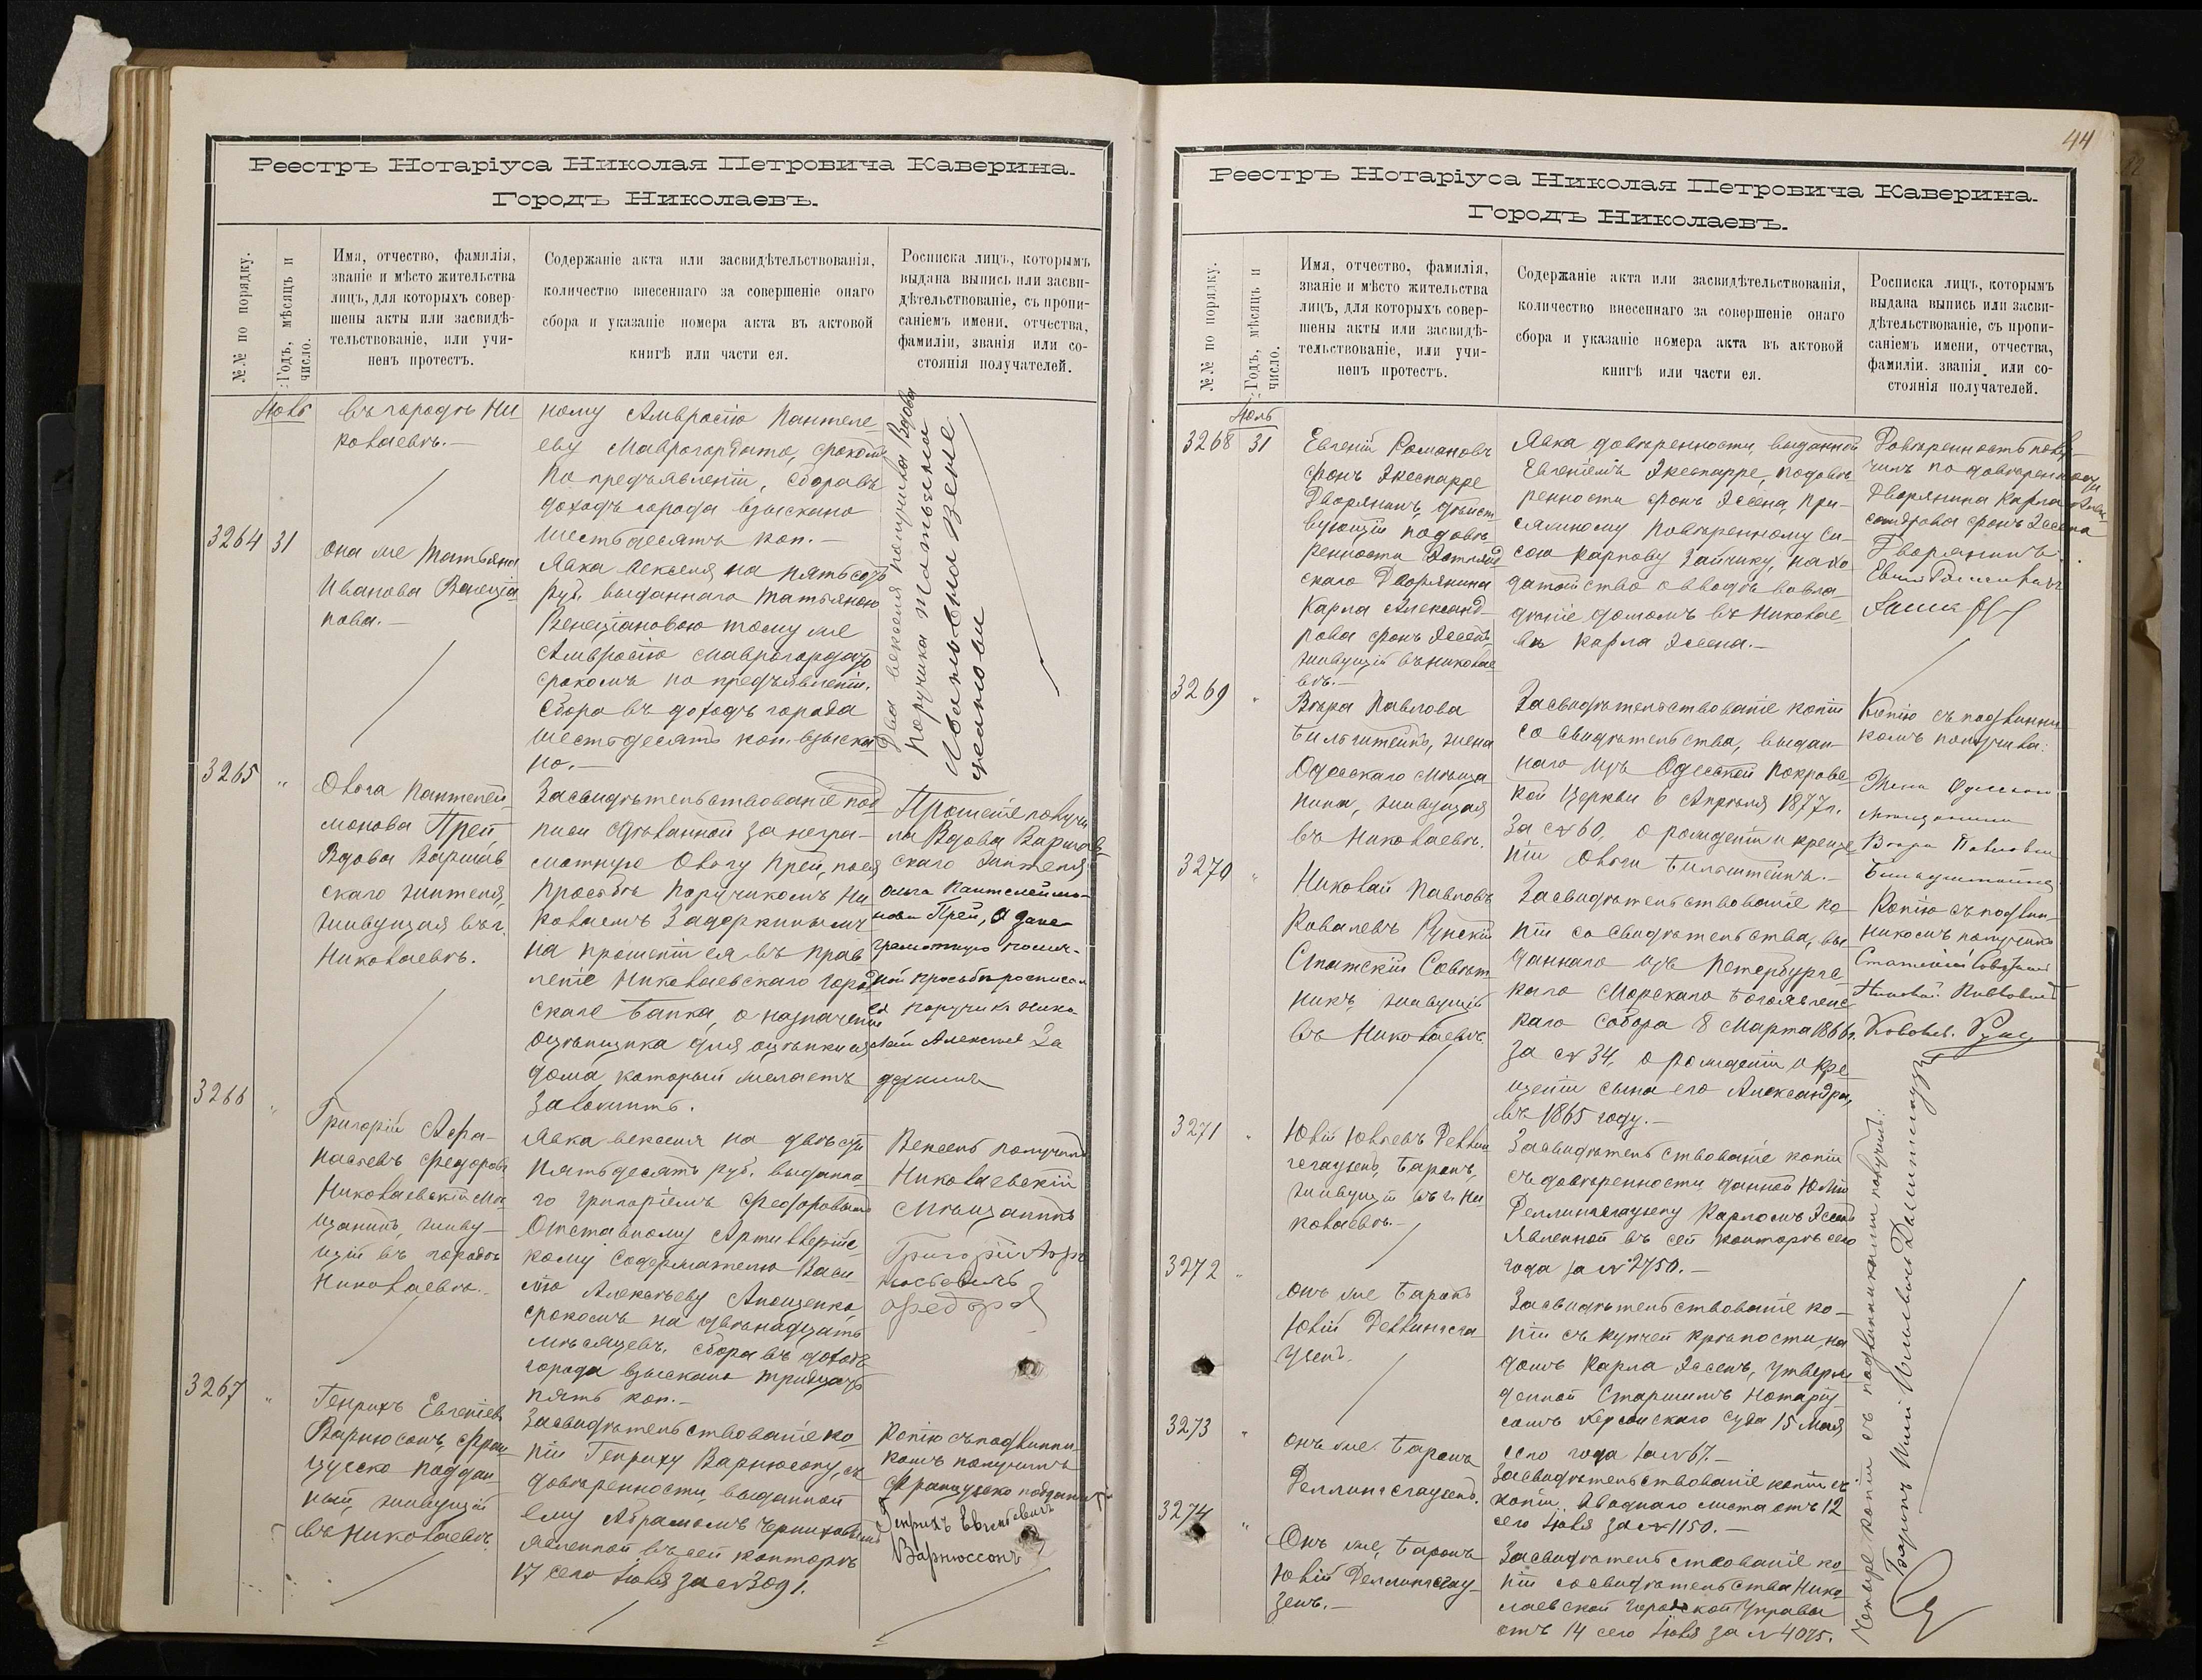 Реестръ Нотаріуса Николая Петровича Каверина.
Городъ Николаевъ.
№№ по порядку.
Годъ, мѣсяцъ и
число.
Имя, отчество, фамилія,
званіе и мѣсто жительства
лицъ, для которыхъ совер-
шены акты или засвидѣ-
тельствованіе, или учи-
ненъ протестъ.
Содержаніе акта или засвидѣтельствованія,
количество внесеннаго за совершеніе онаго
сбора и указаніе номера акта въ актовой
книгѣ или части ея.
Росписка лицъ, которымъ
выдана выпись или засви-
дѣтельствованіе, съ пропи-
саніемъ имени, отчества,
фамиліи, званія или со-
стоянія получателей.
Іюль
въ городѣ Ни
колаевѣ.—
ному Амвросію Пантеле-
еву Маврогордато, срокомъ
по предъявленіи, сбора въ
доходъ города взыскано
шестьдесятъ коп.—
3264 31
Она же Татьяна
Иванова Венеціа
нова.—
Явка векселя на пятьсотъ
руб. выданнаго Татьяною
Венеціановою тому же
Амвросію Маврогордато
срокомъ по предъявленіи.
Сбора въ доходъ города
шестьдесятъ коп. взыска
но.—
Два векселя получила Вдова
поручика Татьяна
Ивановна Вене
ціанова
3265 "
Ольга Пантелей-
монова Прей
Вдова Варшав
скаго жителя,
живущая въ г.
Николаевѣ.
Засвидѣтельствованіе под
писи сдѣланной за негра-
мотную Ольгу Прей, по ея
просьбѣ Поручикомъ Ни
колаемъ Задеркинымъ
на прошеніи ея въ Прав
леніе Николаевскаго Город
скаго Банка, о назначеніи
оцѣнщика для оцѣнки ея
дома, который желаетъ
заложить.
Прошеніе получи
ла Вдова Варшав
скаго жителя
Ольга Пантелеймо-
нова Прей, а за не
грамотную по лич-
ной просьбѣ росписал
ся поручикъ Нико
лай Алексѣевъ За
деркинъ
3266 "
Григорій Афа-
насьевъ Федоровъ
Николаевскій Мѣ
щанинъ, живу-
щій въ городѣ
Николаевѣ.
Явка векселя на двѣсти
пятьдесятъ руб. выданна-
го Григоріемъ Федоровымъ
Отставному Артиллерійс-
кому Содержателю Васи
лію Алексѣеву Анощенко
срокомъ на двѣнадцать
мѣсяцевъ. Сбора въ доходъ
города взыскано тридцать
пять коп.—
Вексель получилъ
Николаевскій
Мѣщанинъ
Григорій Афа
насьевичъ
Федоровъ
3267 "
Генрихъ Евгеніевъ
Варнюсонъ, Фран
цузско поддан
ный, живущій
въ Николаевѣ.
Засвидѣтельствованіе ко-
піи Генриху Варнюсону, съ
довѣренности, выданной
ему Абрамомъ Чернихов
явленной въ сей конторѣ
17 сего Іюля за № 3091.
Копію съ подлинни-
комъ получилъ
Французско подданный
Генрихъ Евгеньевичъ
Варнюссонъ
44
Реестръ Нотаріуса Николая Петровича Каверина.
Городъ Николаевъ.
№№ по порядку.
Годъ, мѣсяцъ и
число.
Имя, отчество, фамилія,
званіе и мѣсто жительства
лицъ, для которыхъ совер-
шены акты или засвидѣ-
тельствованіе, или учи-
ненъ протестъ.
Содержаніе акта или засвидѣтельствованія,
количество внесеннаго за совершеніе онаго
сбора и указаніе номера акта въ актовой
книгѣ или части ея.
Росписка лицъ, которымъ
выдана выпись или засви-
дѣтельствованіе, съ пропи-
саніемъ имени, отчества,
фамиліи, званія, или со-
стоянія получателей.
Іюль
3268 31
Евгеній Романовъ
фонъ Экеспарре
Дворянинъ, дѣйст
вующій по довѣ
ренности Эстлянд
скаго Дворянина
Карла Александ-
рова фонъ Эссенъ,
живущій въ Николае
вѣ.—
Явка довѣренности, выданной
Евгеніемъ Экеспарре, по довѣ
ренности фонъ Эссена, При-
сяжному Повѣренному Си-
сою Карпову Зайчику, на хо
датайство о вводѣ во вла-
дѣніе домомъ въ Николае
вѣ Карла Эссена.—
Довѣренность полу-
чилъ по довѣренности
Дворянина Карла Алек-
сандрова фонъ Эссена
Дворянинъ
3269 "
Вѣра Павлова
Бильштейнъ, жена
Одесскаго Мѣща
нина, живущая
въ Николаевѣ.
Засвидѣтельствованіе копіи
со свидѣтельства, выдан-
наго изъ Одесской Покровс-
кой Церкви 6 Апрѣля 1877 г.
за № 60, о рожденіи и креще
ніи Ольги Бильштейнъ.—
Копію съ подлинни
комъ получила:
Жена Одесскаго
мѣщанина
Вѣра Павловна
3270 "
Николай Павловъ
Ковалевъ Рунскій
Статскій Совѣт
никъ, живущій
въ Николаевѣ.
Засвидѣтельствованіе ко-
піи со свидѣтельства, вы
даннаго изъ Петербургс-
каго Морскаго Богоявленс
каго Собора 8 Марта 1866 г.
за № 34, о рожденіи и кре
щеніи сына его Александра,
въ 1865 году.—
Копію съ подлин-
никомъ получилъ
Статскій Совѣтникъ
Николай Павловичъ
3271 "
Юлій Юльевъ Деллин
гсгаузенъ, Баронъ,
живущій въ г. Ни
колаевѣ.—
Засвидѣтельствованіе копіи
съ довѣренности, данной Юлію
Деллингсгаузену Карломъ Эссенъ
явленной въ сей конторѣ сего
года за № 2750.—
3272 "
Онъ же Баронъ
Юлій Деллингсга
узенъ.
Засвидѣтельствованіе ко-
піи съ купчей крѣпости, на
домъ Карла Эссенъ, утверж
денной Старшимъ Нотаріу
сомъ Херсонскаго Суда 15 Мая
сего года за № 67.—
3273 "
Онъ же Баронъ
Деллингсгаузенъ.
Засвидѣтельствованіе копіи съ
копіи вводнаго листа отъ 12
сего Іюля за № 1150.—
3274 "
Онъ же, Баронъ
Юлій Деллингсгау
зенъ.—
Засвидѣтельствованіе ко
піи со свидѣтельства Нико
лаевской Городской Управы
отъ 14 сего Іюля за № 4075.
Четыре копіи съ подлинниками получилъ:
Баронъ